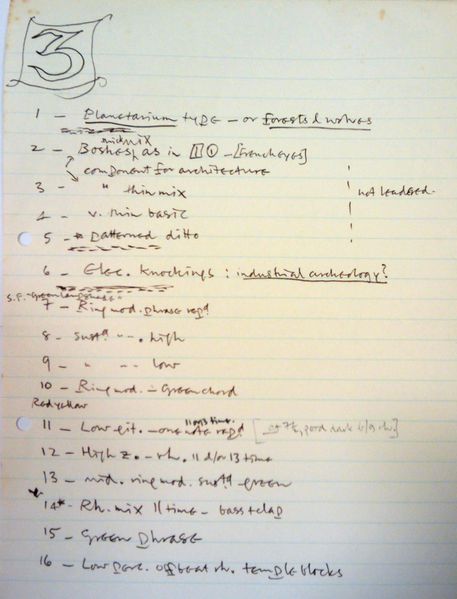 3
1 — Planetarium type — or Forests & wolves
2 — Boshes, as in II ① — [frencheyes]
mid mix
component for architecture
3 — " thin mix
not leadered.
4 — v. thin basic
5 — * patterned ditto
6 — Elec. knockings : industrial archeology?
S.F. "Green landscape"
7 — Ring mod. phrase rep'd
8 — sust'd " — . high
9 — " " — . low
10 — Ring mod. — Green chord
Red yellow
11 — Low git. — one note rep'd
11 or 13 time.
12 — High z. — rh. 11 &/or 13 time
13 — mid. ring mod. sust'd green
14* — Rh. mix 11 time — bass + clap
15 — Green phrase
16 — Low perc. offbeat rh. temple blocks